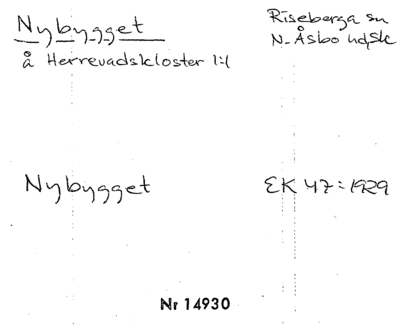 Nybygget
å Herrevadskloster 1:1
Riseberga sn
N. Åsbo hdsk
Nybygget
EK 47:1929
Nr 14930